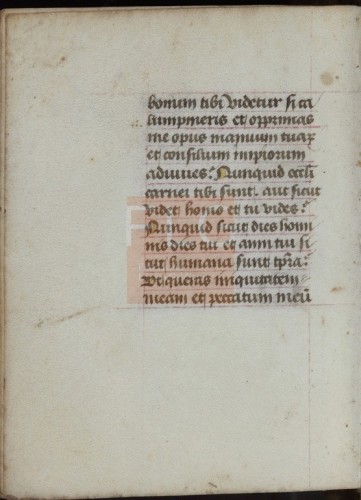 bonum tibi videtur si ca
lumpnieris et opprimas
me opus manuum tuaꝝ
et consilium impiorum
adiuues? Nunquid occli
carnei tibi sunt. aut sicut
videt homo et tu vides?
Nunquid sicut dies homi
nis dies tui et anni tui si
cut humana sunt tp̃ra?
Ut queras iniquitatem
meam et peccatum meũ